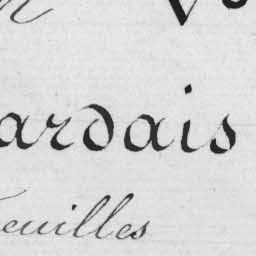 ardais
euilles